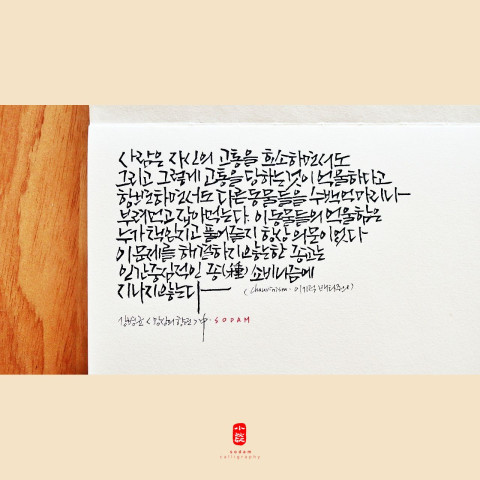 사람은 자신의 고통을 호소하면서도
그리고 그렇게 고통을 당하는것이 억울하다고
항변하면서도 다른동물들을 수백억마리나
부려먹고 잡아먹는다. 이 동물들의 억울함은
누가 책임지고 풀어줄지 항상 의문이었다
이 문제를 해결하지 않는한 종교는
인간중심적인 종(種) 쇼비니즘에
지나지 않는다
(chauvinism - 이기적 배타주의)
中 - SODAM
sodam
calligraphy